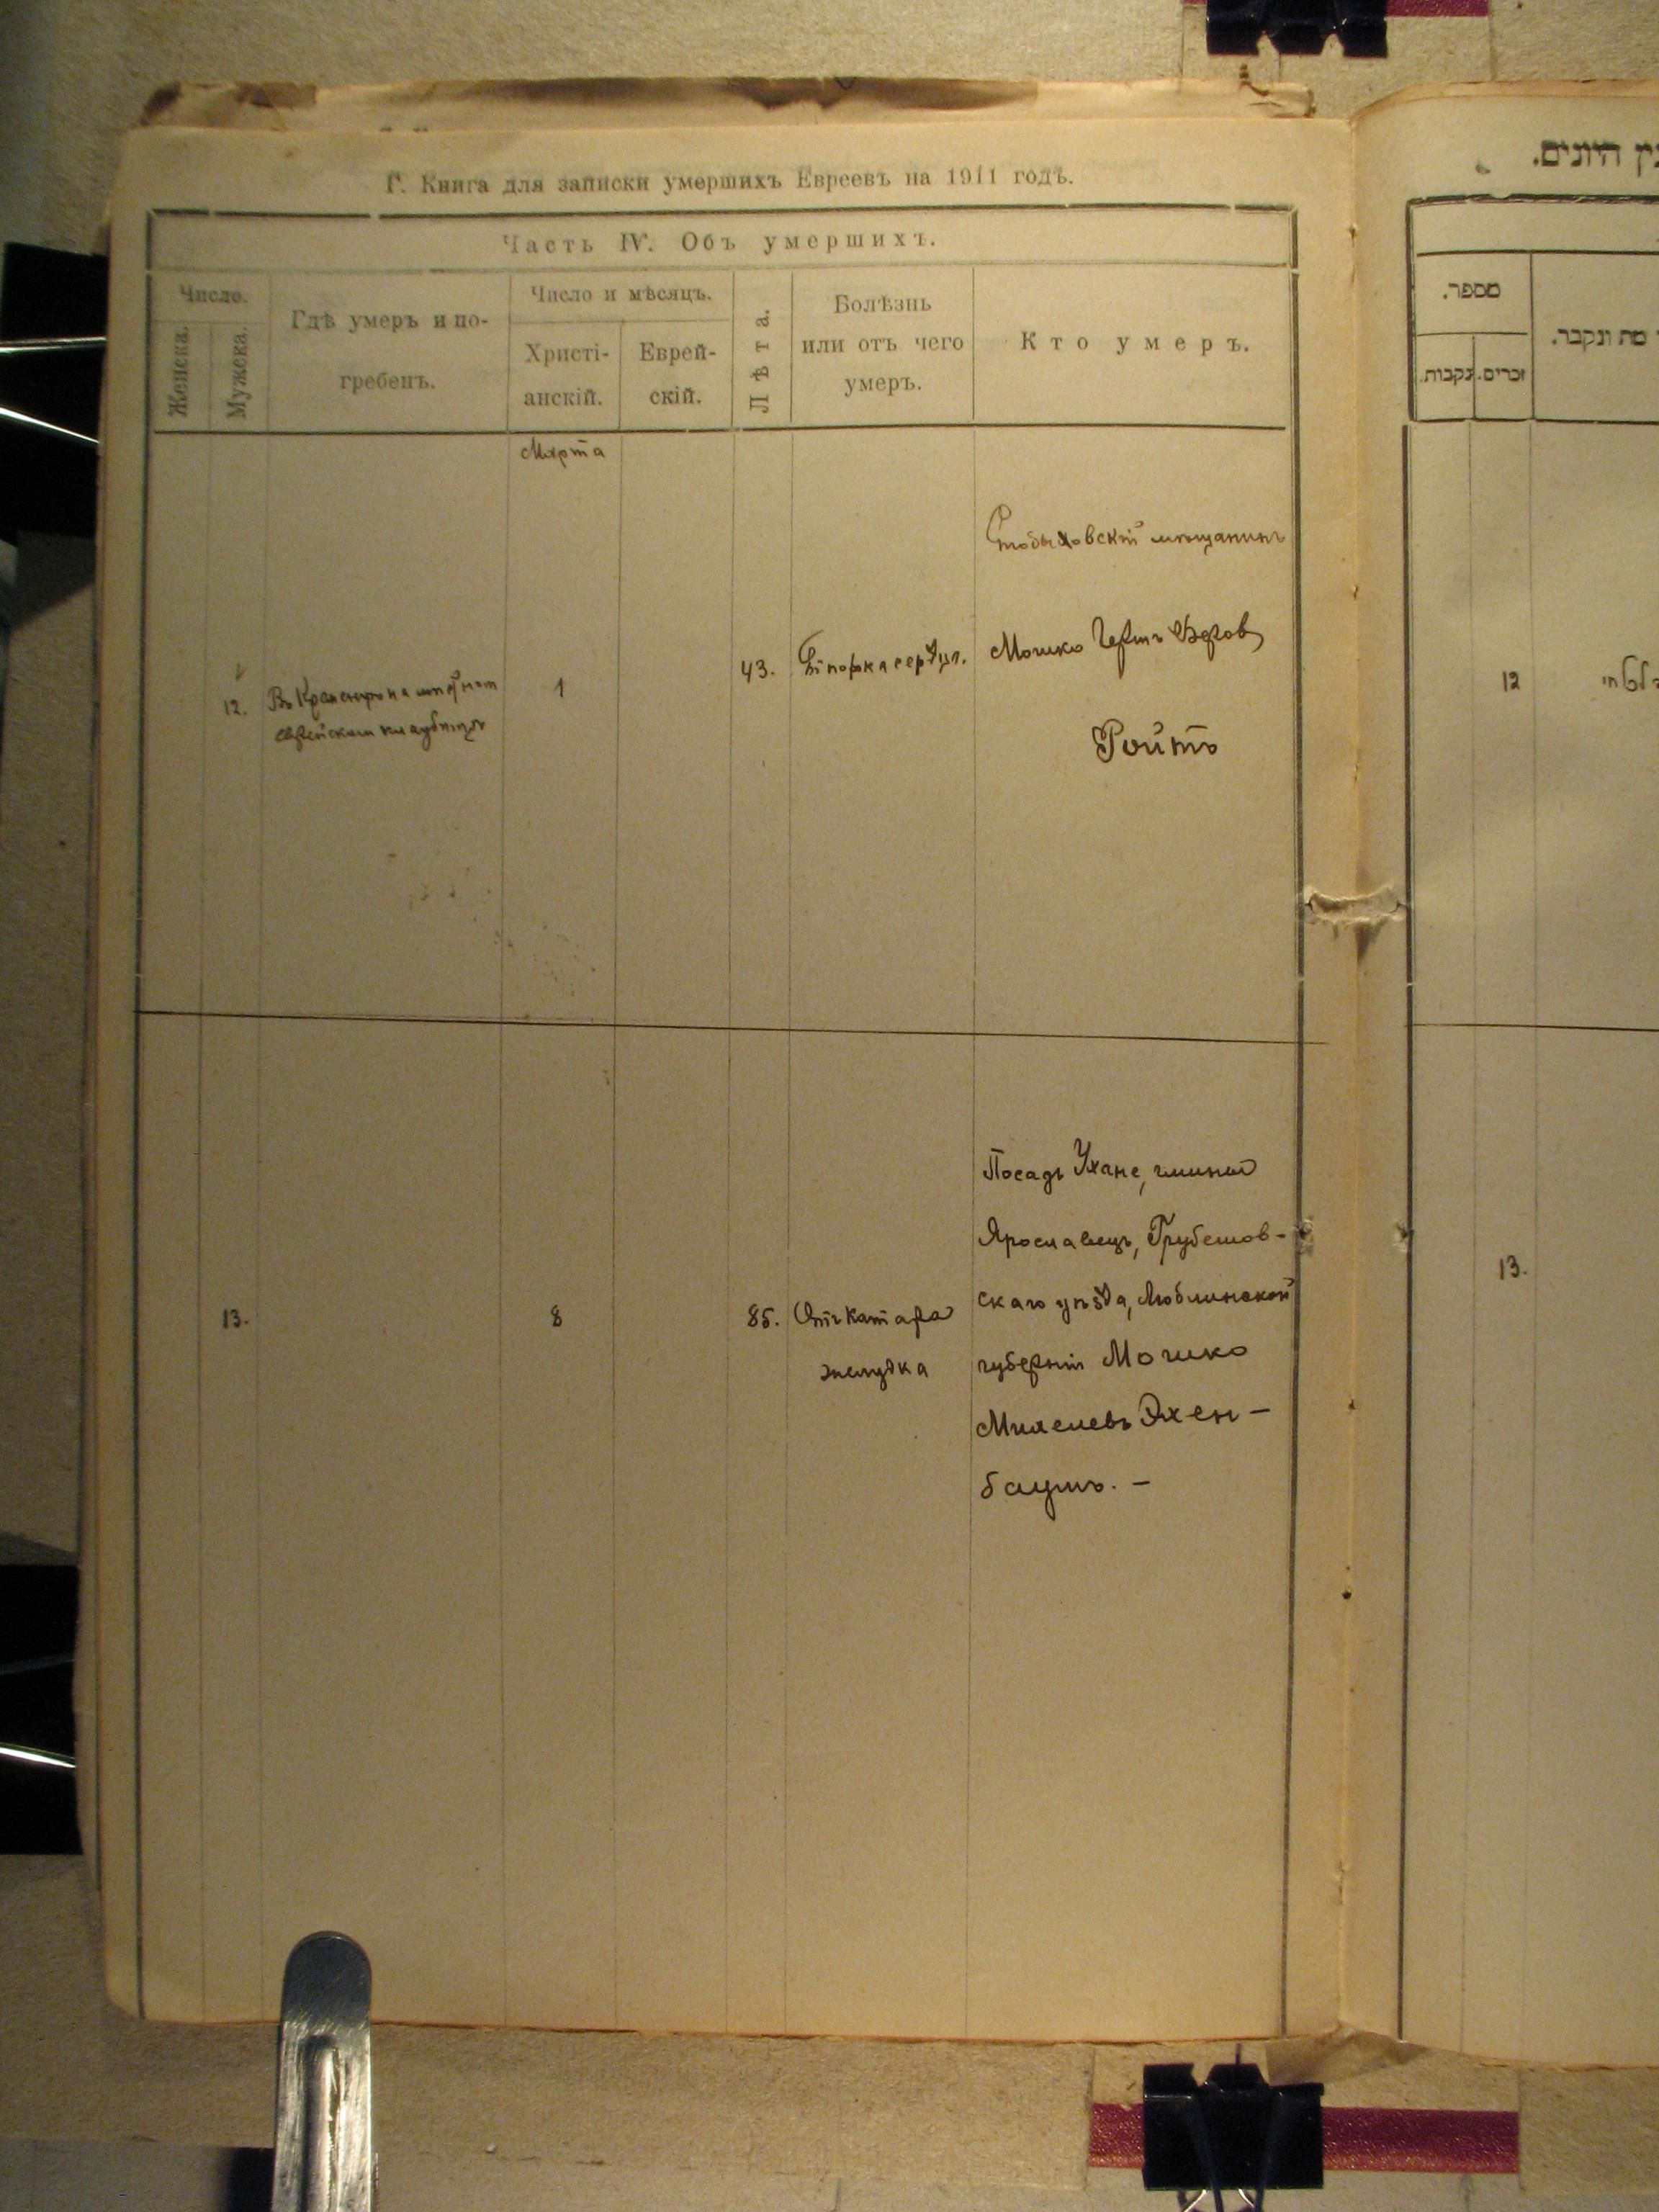 Г. Книга для записки умершихъ Евреевъ на 1911 годъ.
Часть IV. Объ умершихъ.
Число.
Женска.
Мужеска.
Гдѣ умеръ и по-
гребенъ.
Число и мѣсяцъ.
Христі-
анскій.
Еврей-
скій.
Лѣта.
Болѣзнь
или отъ чего
умеръ.
Кто умеръ.
Марта
12.
Въ Кременцѣ на мѣстномъ
еврейскомъ кладбищѣ
1
43.
порока сердца.
Стобыховскій мѣщанинъ
Мошко Гершъ Беров
Ройтъ
13.
8
85.
Отъ катара
желудка
Посадъ Ухане, гмины
Ярославецъ, Грубешов-
скаго уѣзда, Люблинской
губерніи Мошко
Михелевъ Эхен-
баумъ. -
מספר.
זכרים.
נקבות.
מת ונקבר.
12
13.